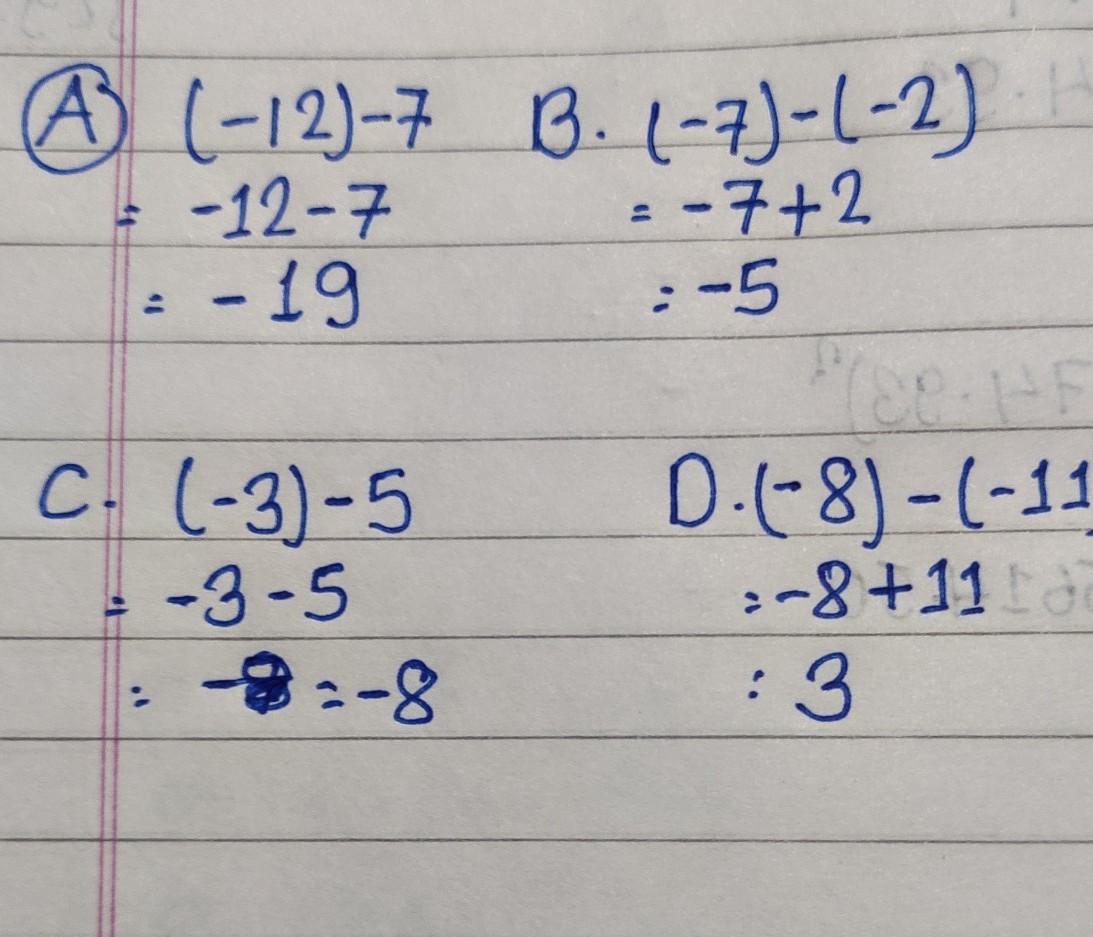 A (-12)-7
= -12-7
= -19
B. (-7)-(-2)
= -7+2
= -5
C. (-3)-5
= -3-5
= = -8
D. (-8)-(-11)
= -8+11
= 3